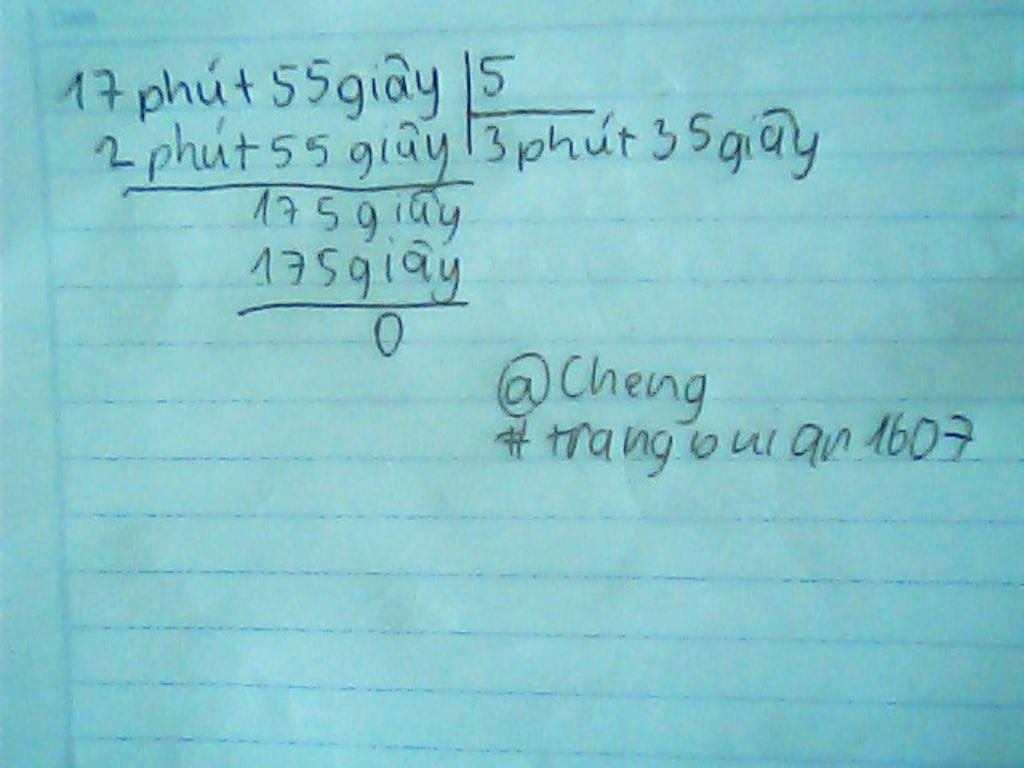 17 phút 55 giây 5
2 phút 55 giây 3 phút 35 giây
175 giây
175 giây
0
@Cheng
#trangbuian1607